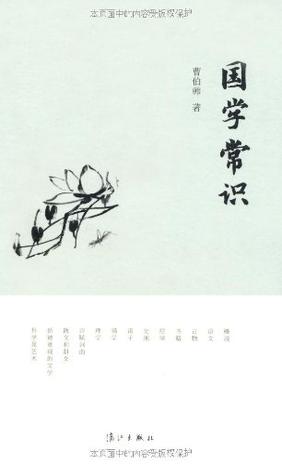 本页面中的内容受版权保护
国学常识
曹伯韩 著
概说
语文
古物
书籍
经学
史地
诸子
佛学
理学
诗赋词曲
散文和骈文
的文学
科学及艺术
漓江出版社
本页面中的内容受版权保护